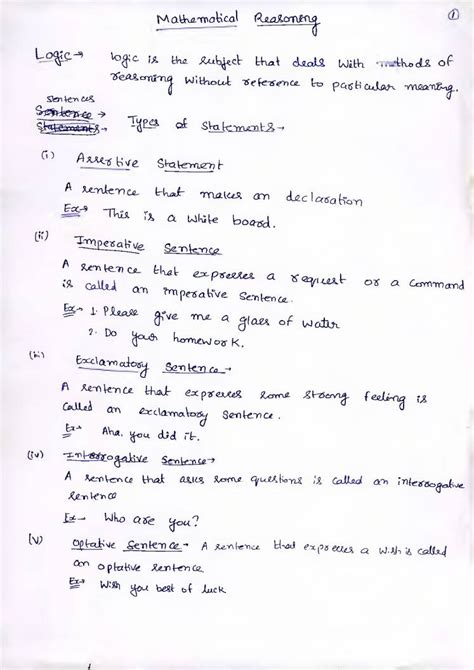 Mathematical Reasoning ①
Logic → logic is the subject that deals with methods of
reasoning without reference to particular meaning.
sentences
Sentence →
Statements → Types of Statements →
(i) Assertive Statement
A sentence that makes an declaration
Ex→ This is a white board.
(ii) Imperative Sentence
A sentence that expresses a request or a command
is called an imperative Sentence.
Ex→ 1. Please give me a glass of water
2. Do your homework.
(iii) Exclamatory Sentence →
A sentence that expresses some strong feeling is
called an exclamatory sentence.
Ex→ Aha, you did it.
(iv) Interrogative Sentence→
A sentence that asks some questions is called an interrogative
sentence
Ex→ Who are you?
(v) Optative Sentence→ A sentence that expresses a wish is called
an optative sentence
Ex→ Wish you best of luck